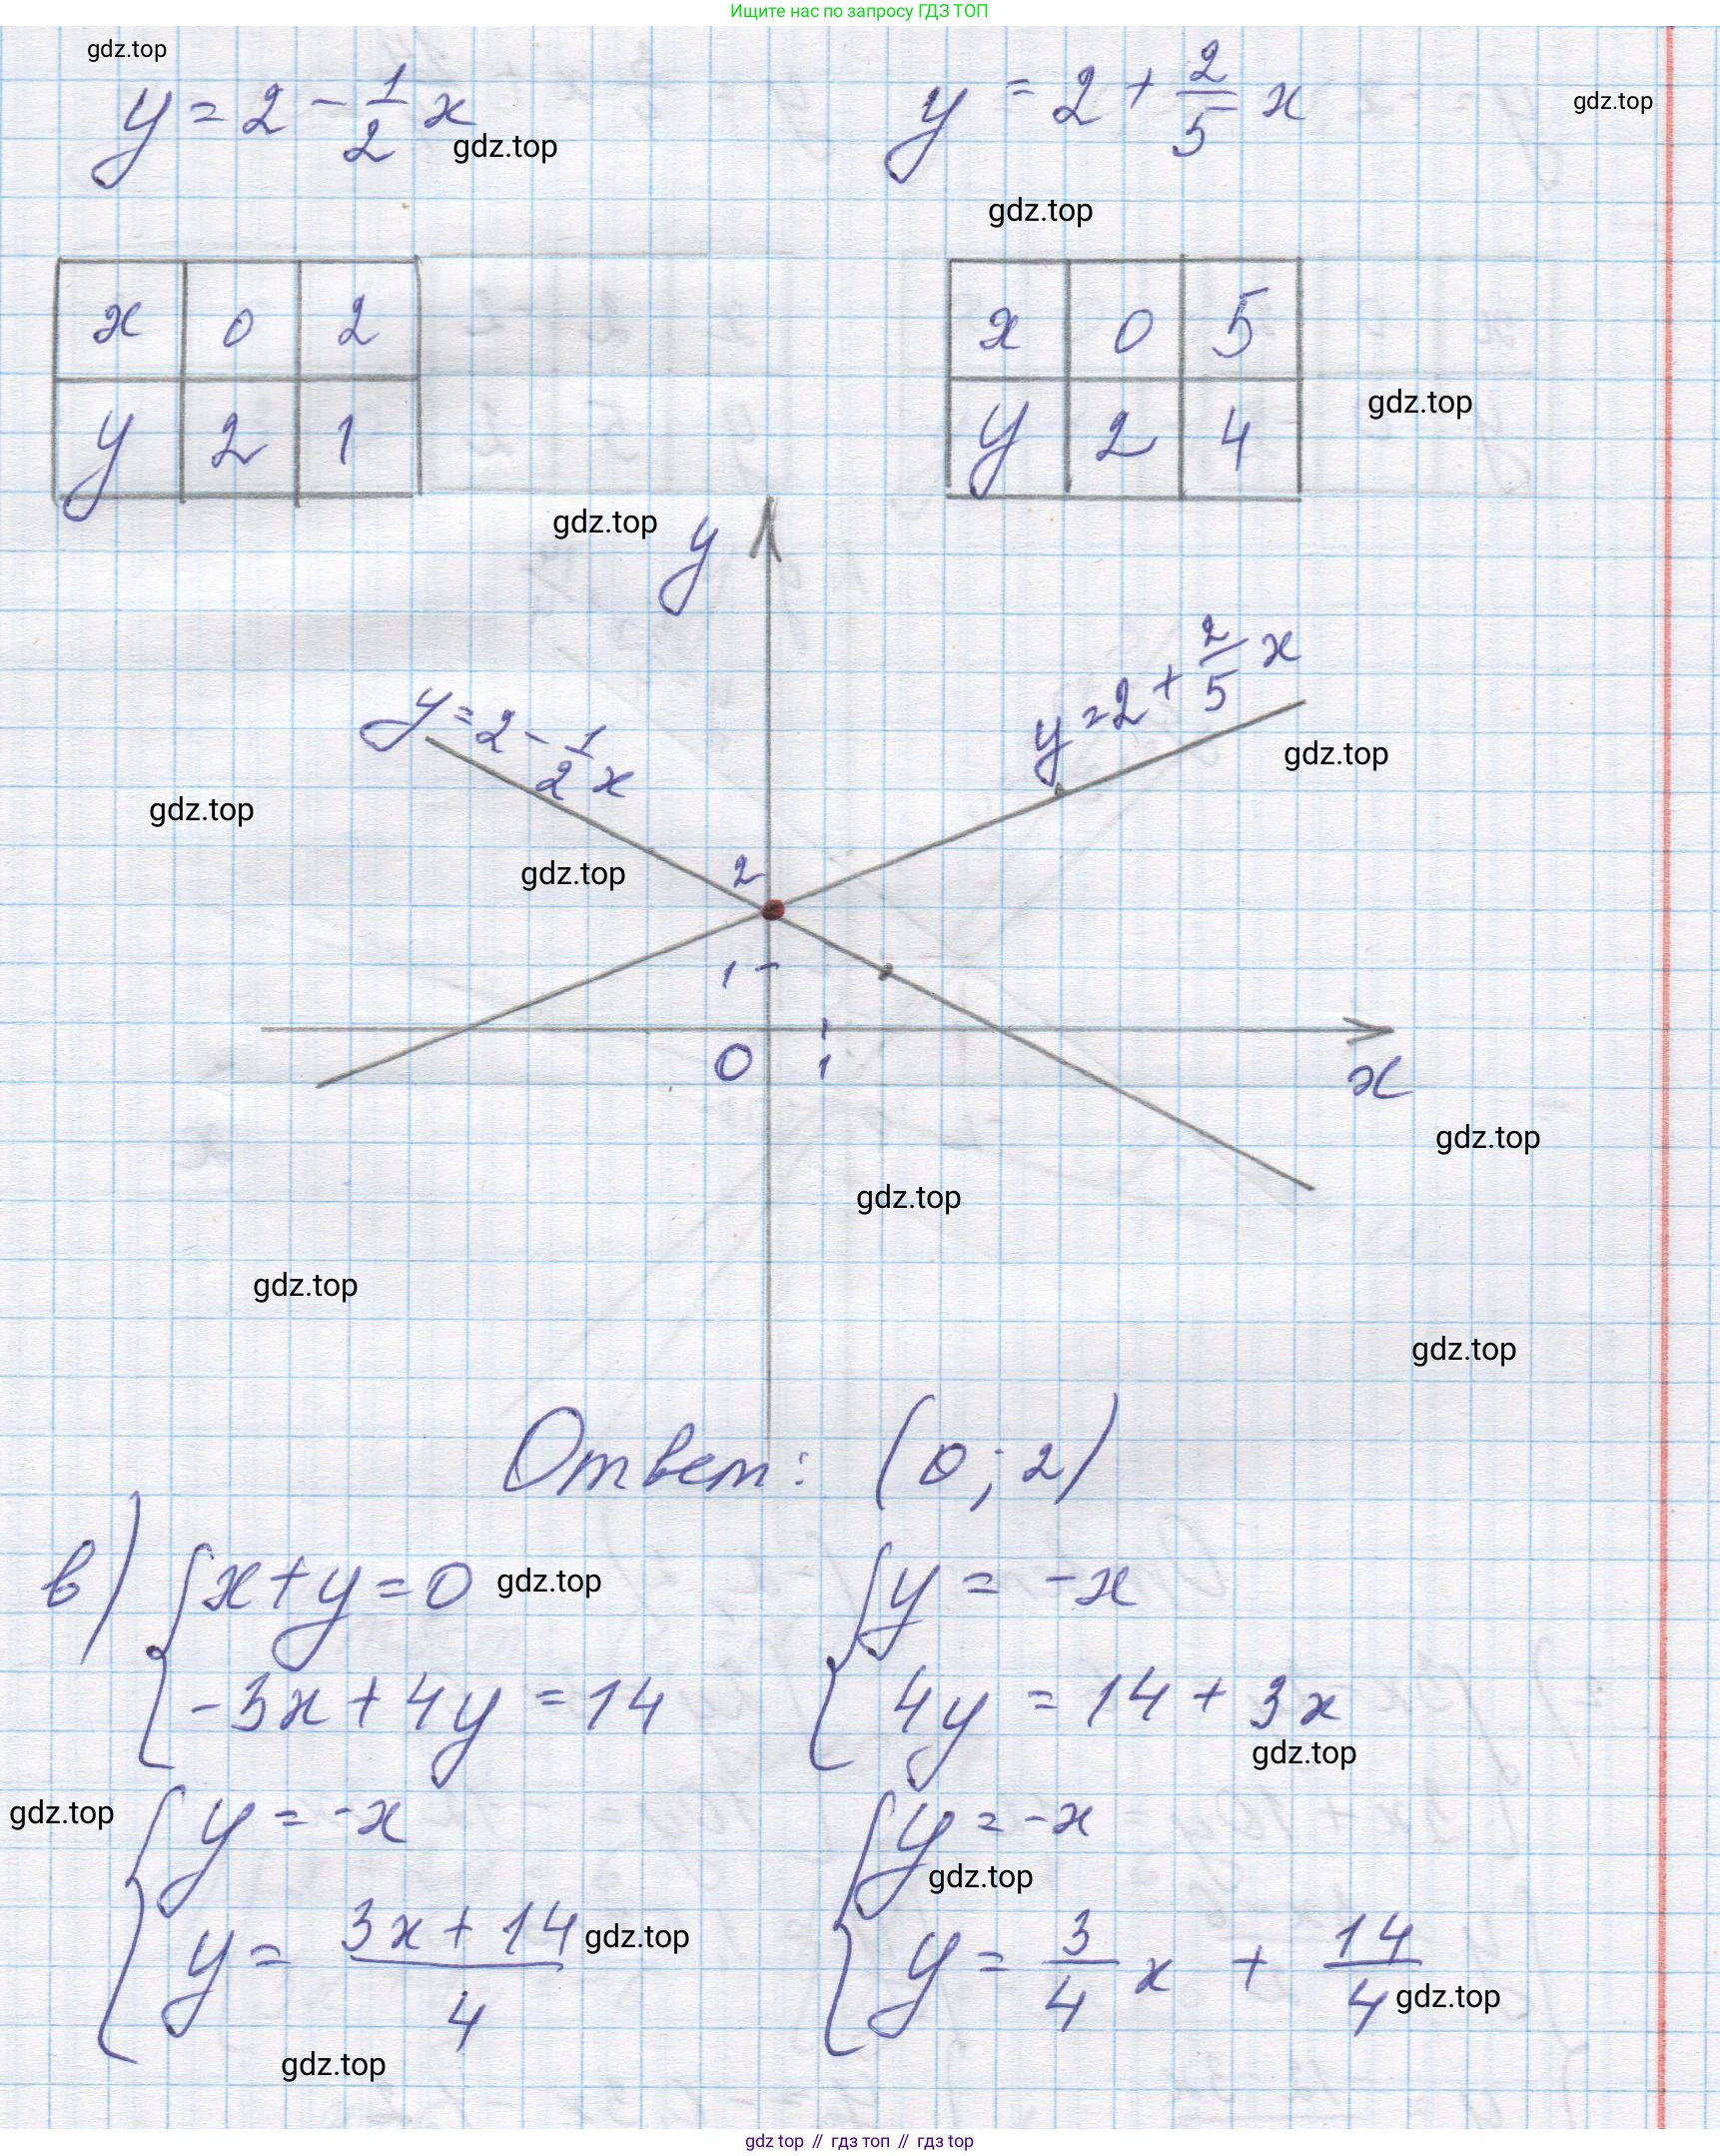 Ищите нас по запросу ГДЗ ТОП
gdz.top
y = 2 - 1/2 x
y = 2 + 2/5 x
gdz.top
gdz.top
gdz.top
x 0 2
y 2 1
x 0 5
y 2 4
gdz.top
gdz.top
y
y = 2 - 1/2 x
y = 2 + 2/5 x
gdz.top
gdz.top
gdz.top
2
1
0 1
x
gdz.top
gdz.top
gdz.top
gdz.top
Ответ: (0; 2)
в) { x + y = 0
-3x + 4y = 14
gdz.top
{ y = -x
4y = 14 + 3x
gdz.top
gdz.top
{ y = -x
y = (3x + 14)/4
gdz.top
gdz.top
{ y = -x
gdz.top
y = 3/4 x + 14/4
gdz.top
gdz top // гдз топ // гдз top